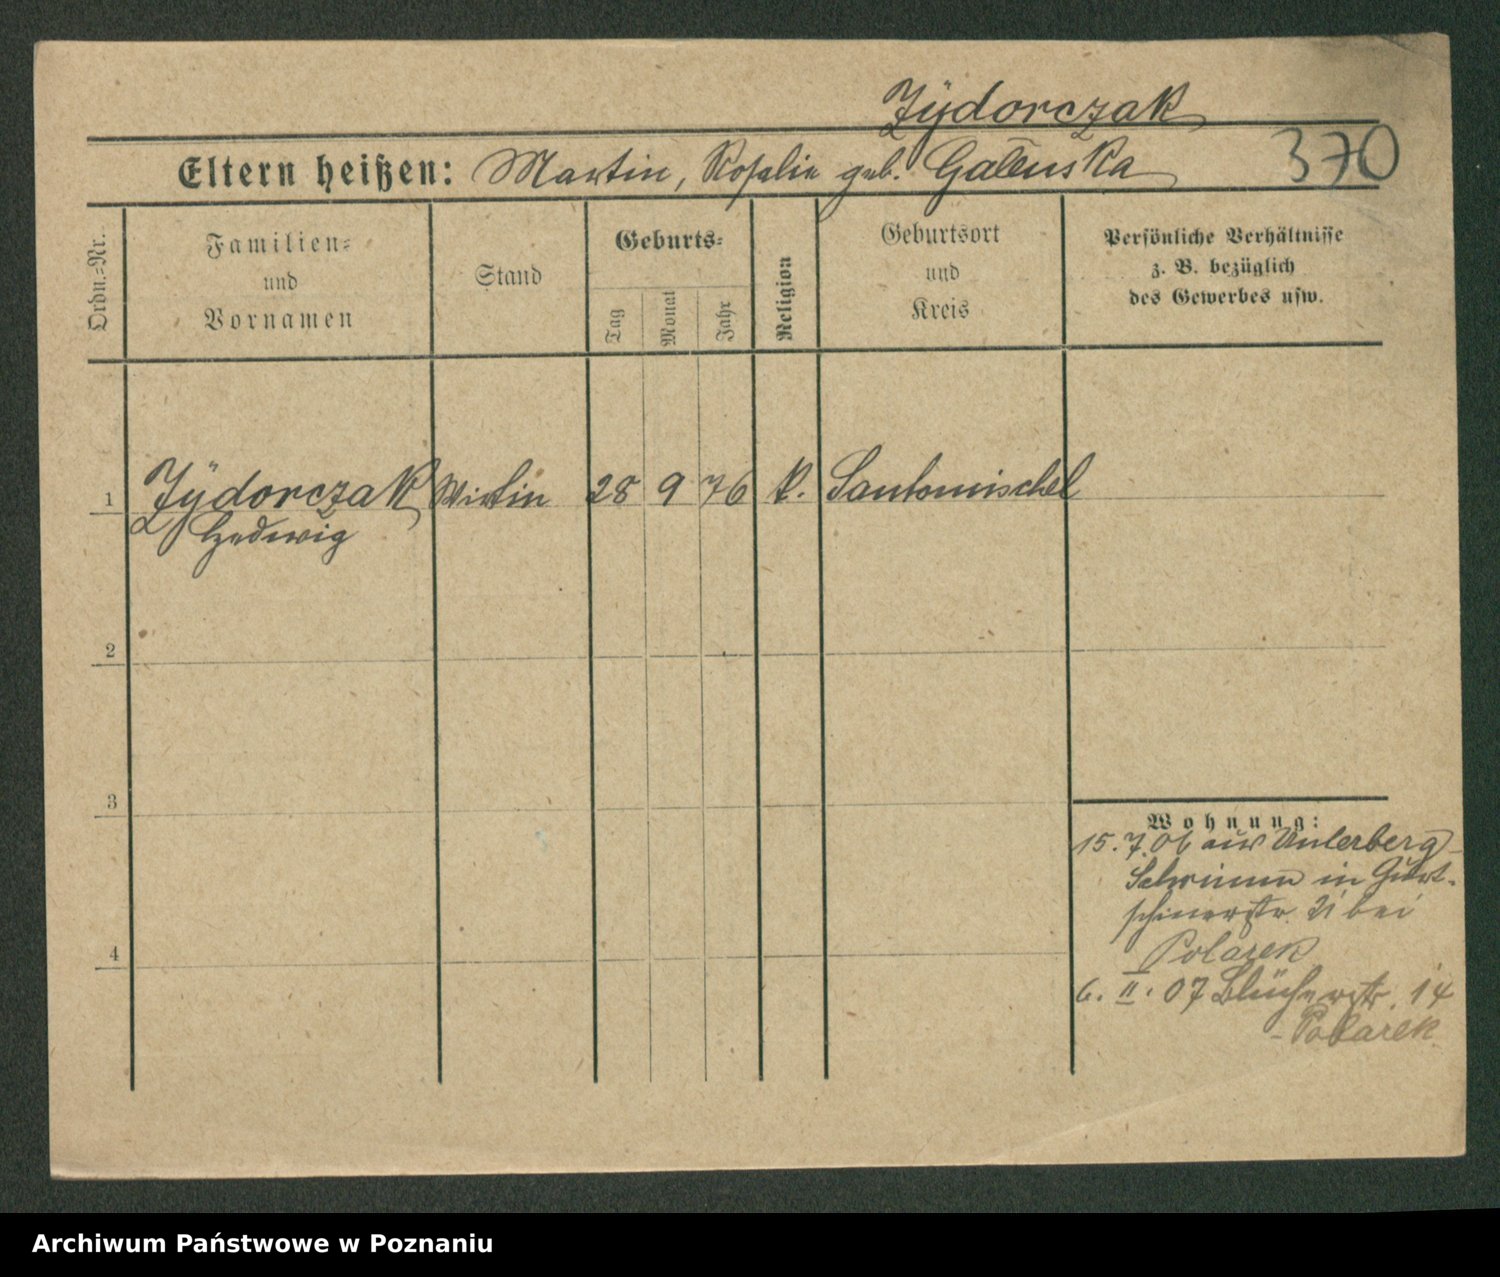 Zÿdorczak
Eltern heißen: Martin, Rosalie geb. Galenska 370
Ordn.=Nr.
Familien=
und
Vornamen
Stand
Geburts=
Tag
Monat
Jahr
Religion
Geburtsort
und
Kreis
Persönliche Verhältnisse
z. B. bezüglich
des Gewerbes usw.
1 Zÿdorczak Wirtin 28 9 76 k. Santomischel
Hedwig
2
3
4
Wohnung:
15.7.06 aus Unterberg
in
bei
Polarek
6. II. 07 Blücherstr. 14
- Polarek
Archiwum Państwowe w Poznaniu